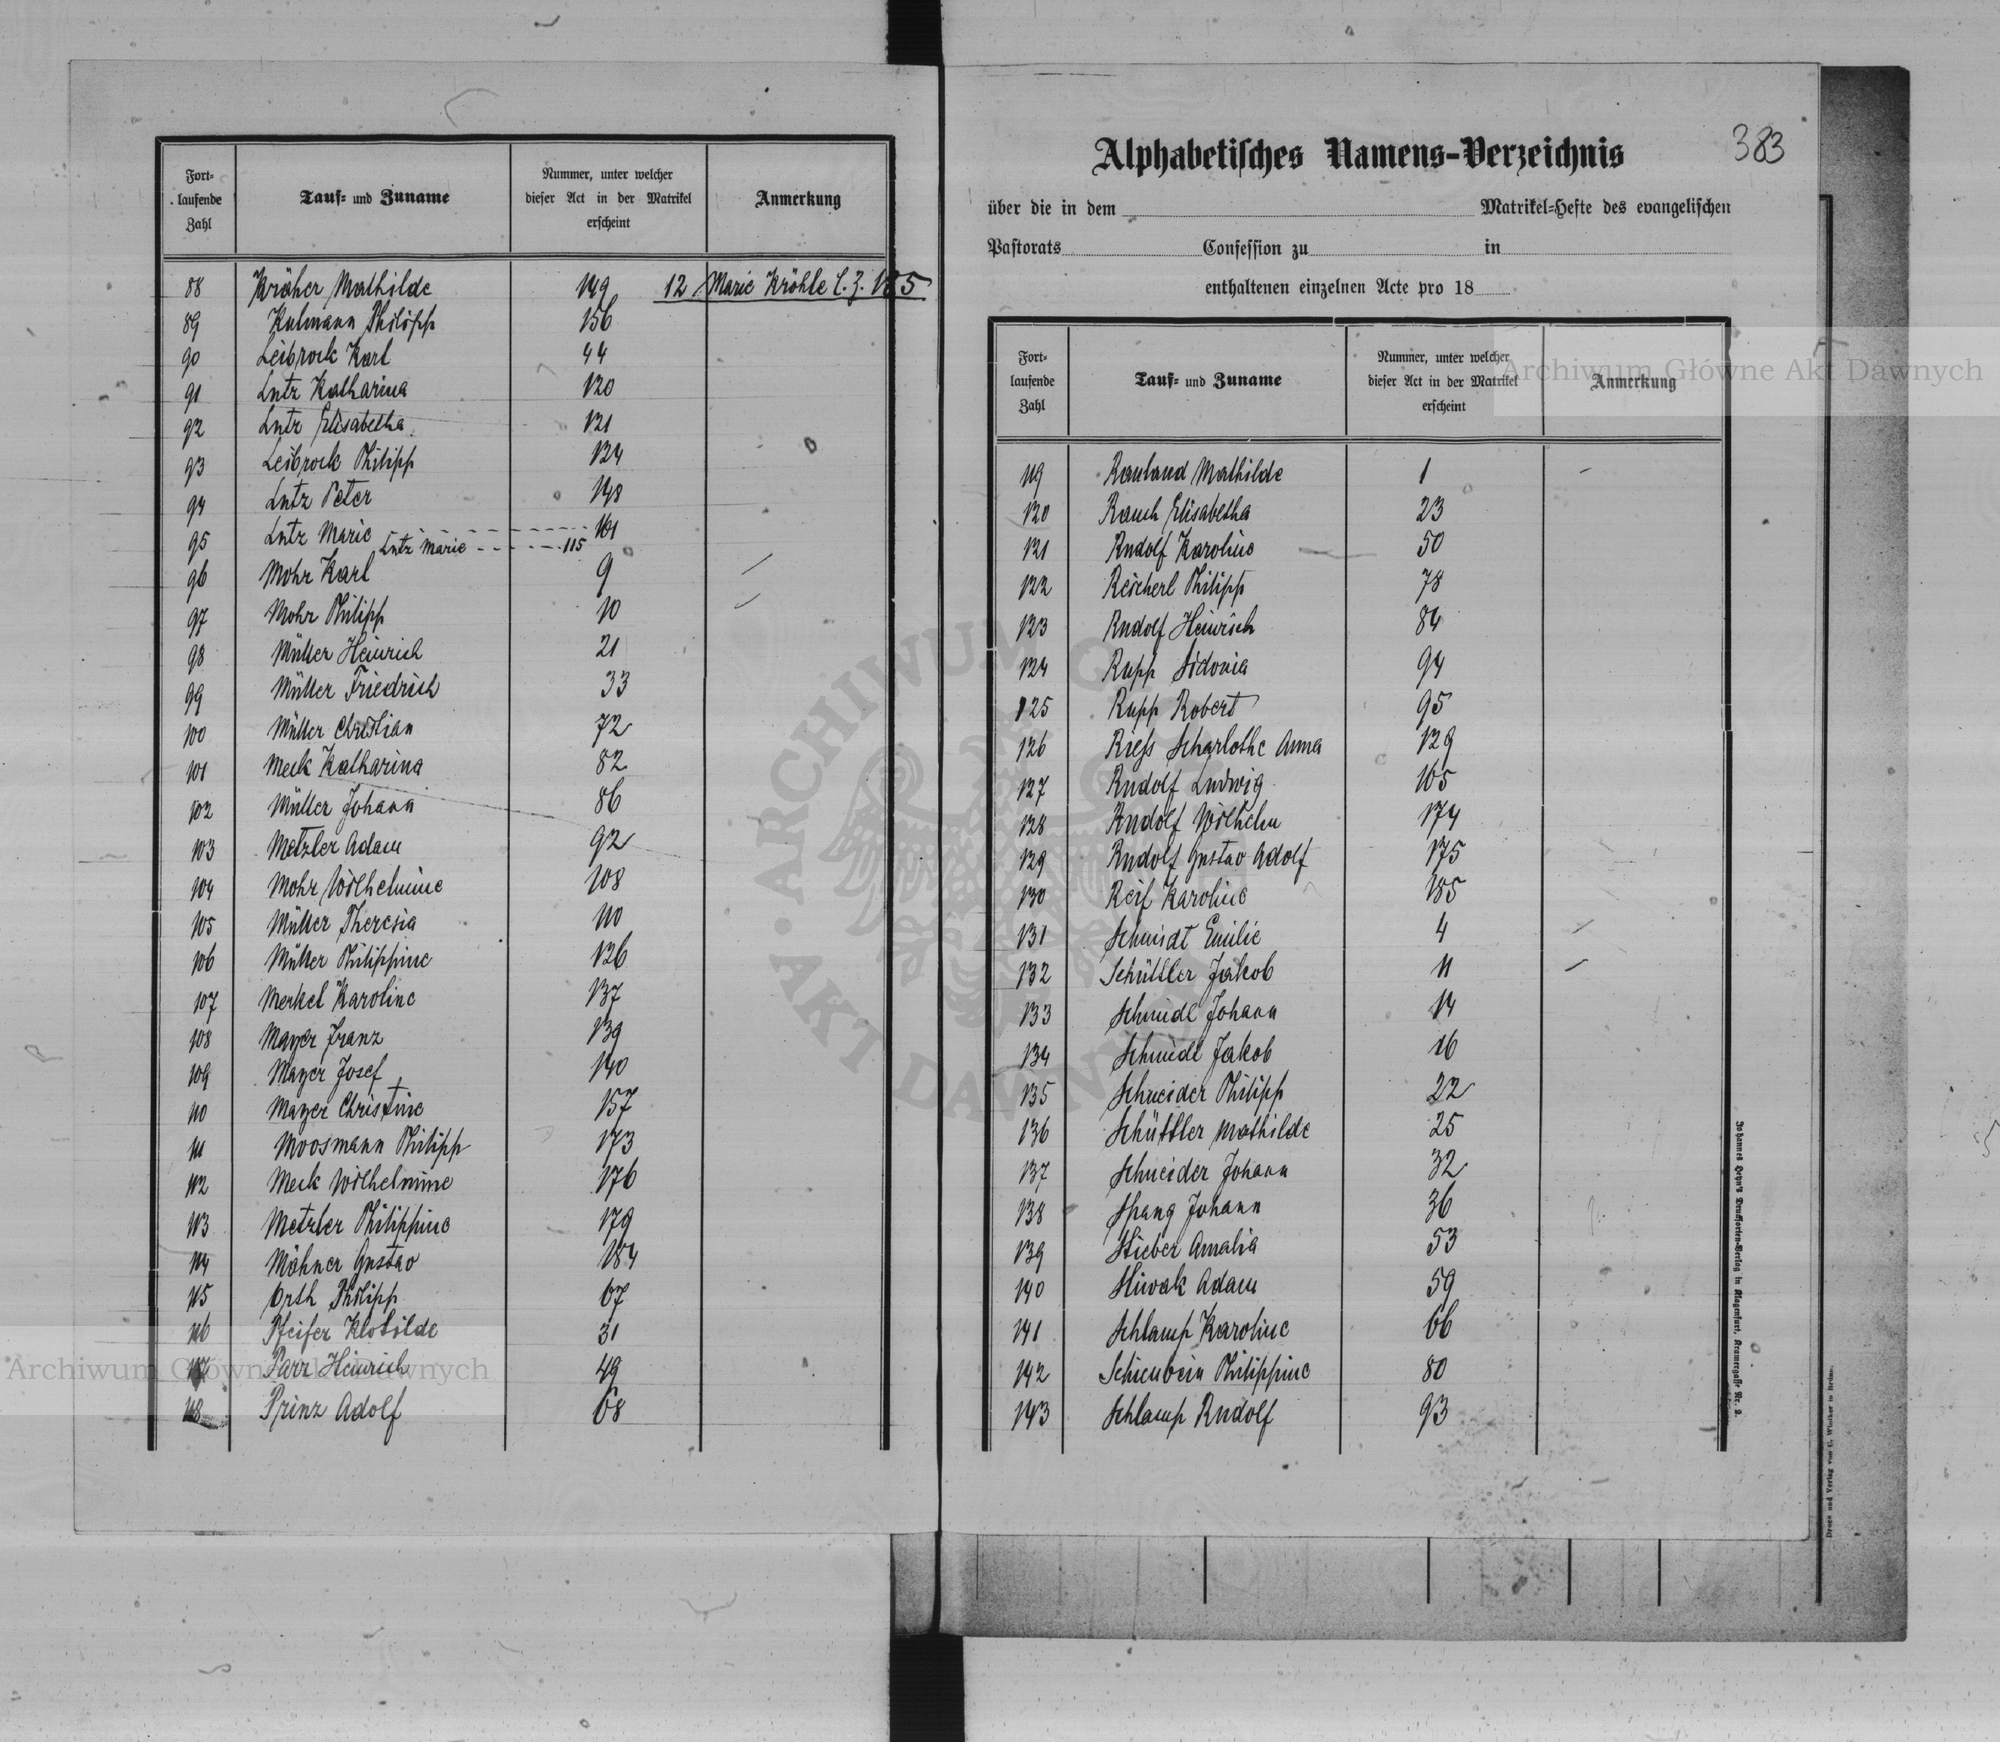 Fort-
laufende
Zahl
Tauf- und Zuname
Nummer, unter welcher
dieser Act in der Matrikel
erscheint
Anmerkung
88 Kräher Mathilde 149 12 Marie Kröhle l. Z. 185
89 Kulmann Philipp 156
90 Leibrock Karl 44
91 Lutz Katharina 120
92 Lutz Elisabetha 121
93 Leibrock Philipp 124
94 Lutz Peter 148
95 Lutz Marie 161
Lutz Marie 115
96 Mohr Karl 9
97 Mohr Philipp 10
98 Müller Heinrich 21
99 Müller Friedrich 33
100 Müller Christian 72
101 Meck Katharina 82
102 Müller Johann 86
103 Metzler Adam 92
104 Mohr Wilhelmine 108
105 Müller Theresia 110
106 Müller Philippine 126
107 Merkel Karoline 137
108 Mayer Franz 139
109 Mayer Josef 140
110 Mayer Christine 157
111 Moosmann Philipp 173
112 Meck Wilhelmine 176
113 Metzler Philippine 179
114 Möhner Gustav 184
115 Orth Philipp 67
116 Pfeifer Klotilde 31
117 Parr Heinrich 49
118 Prinz Adolf 68
383
Alphabetisches Namens-Verzeichnis
über die in dem Matrikel-Hefte des evangelischen
Pastorats Confession zu in
enthaltenen einzelnen Acte pro 18
Fort-
laufende
Zahl
Tauf- und Zuname
Nummer, unter welcher
dieser Act in der Matrikel
erscheint
Anmerkung
119 Rauland Mathilde 1
120 Rauch Elisabetha 23
121 Rudolf Karoline 50
122 Reicherl Philipp 78
123 Rudolf Heinrich 84
124 Rupp Sidonia 94
125 Rupp Robert 95
126 Riess Scharlothe Anna 129
127 Rudolf Ludwig 165
128 Rudolf Wilhelm 174
129 Rudolf Gustav Adolf 175
130 Reif Karoline 185
131 Schmidt Emilie 4
132 Schüttler Jakob 11
133 Schmidl Johann 14
134 Schmidl Jakob 16
135 Schneider Philipp 22
136 Schüttler Mathilde 25
137 Schneider Johann 32
138 Spang Johann 36
139 Stieber Amalia 53
140 Sliwak Adam 59
141 Schlamp Karoline 66
142 Schienbein Philippine 80
143 Schlamp Rudolf 93
Johannes Heyn's Drucksorten-Verlag in Klagenfurt, Kramergasse Nr. 2.
Druck und Verlag von C. Winiker in Brünn.
Archiwum Główne Akt Dawnych
Archiwum Główne Akt Dawnych
ARCHIWUM GŁÓWNE AKT DAWNYCH